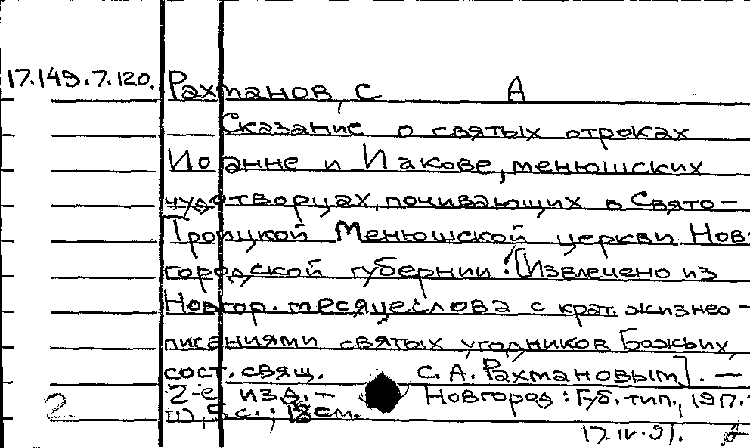 17.149.7.120. Рахманов, С А
Сказание о святых отроках
Иоанне и Иакове, менюшских
чудотворцах, почивающих в Свято-
Троицкой Менюшской церкви Нов-
городской губернии. [Извлечено из
Новгор. месяцеслова с крат. жизнео-
писаниями святых угодников Божьих,
сост. свящ. С. А. Рахмановым]. —
2-е изд. — Новгород: Губ. тип.,
2. 5 с.; 18 см.
17.IV.91.